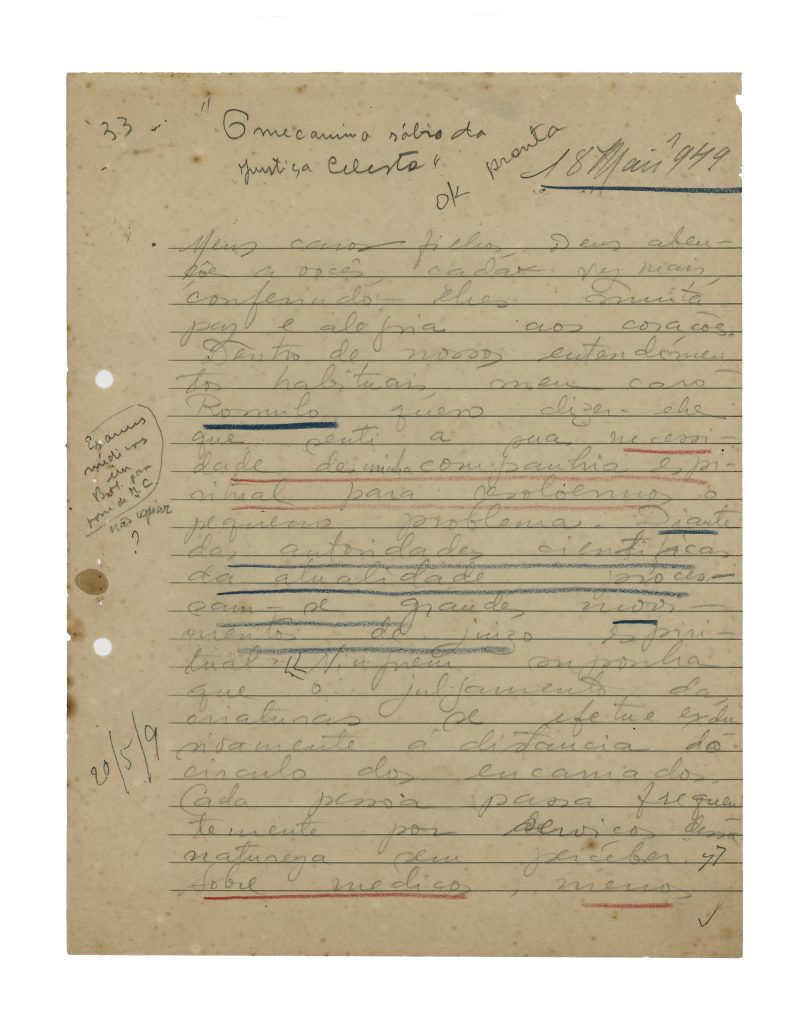 33 -
"O mecanismo sábio da
justiça Celeste"
OK pronto
18 Maio 949
Meus caros filhos, Deus aben-
çôe a vocês cada vez mais,
conferindo-lhes muita
paz e alegria aos corações.
Dentro de nossos entendimen
tos habituais meu caro
Romulo quero dizer-lhe
que senti a sua necessi-
dade de minha companhia espi-
ritual para resolvermos o
pequeno problema. Diante
das autoridades cientificas
da atualidade proces-
sam-se grandes movi-
mentos de juizo espiri-
tual. Ninguem suponha
que o julgamento das
criaturas se efetue exclu
sivamente á distancia do
circulo dos encarnados.
Cada pessoa passa frequen
temente por serviços dessa
natureza sem perceber.
Sobre medicos, menos
Exames
médicos
em
B.H. para
não copiar
?
20/5/9